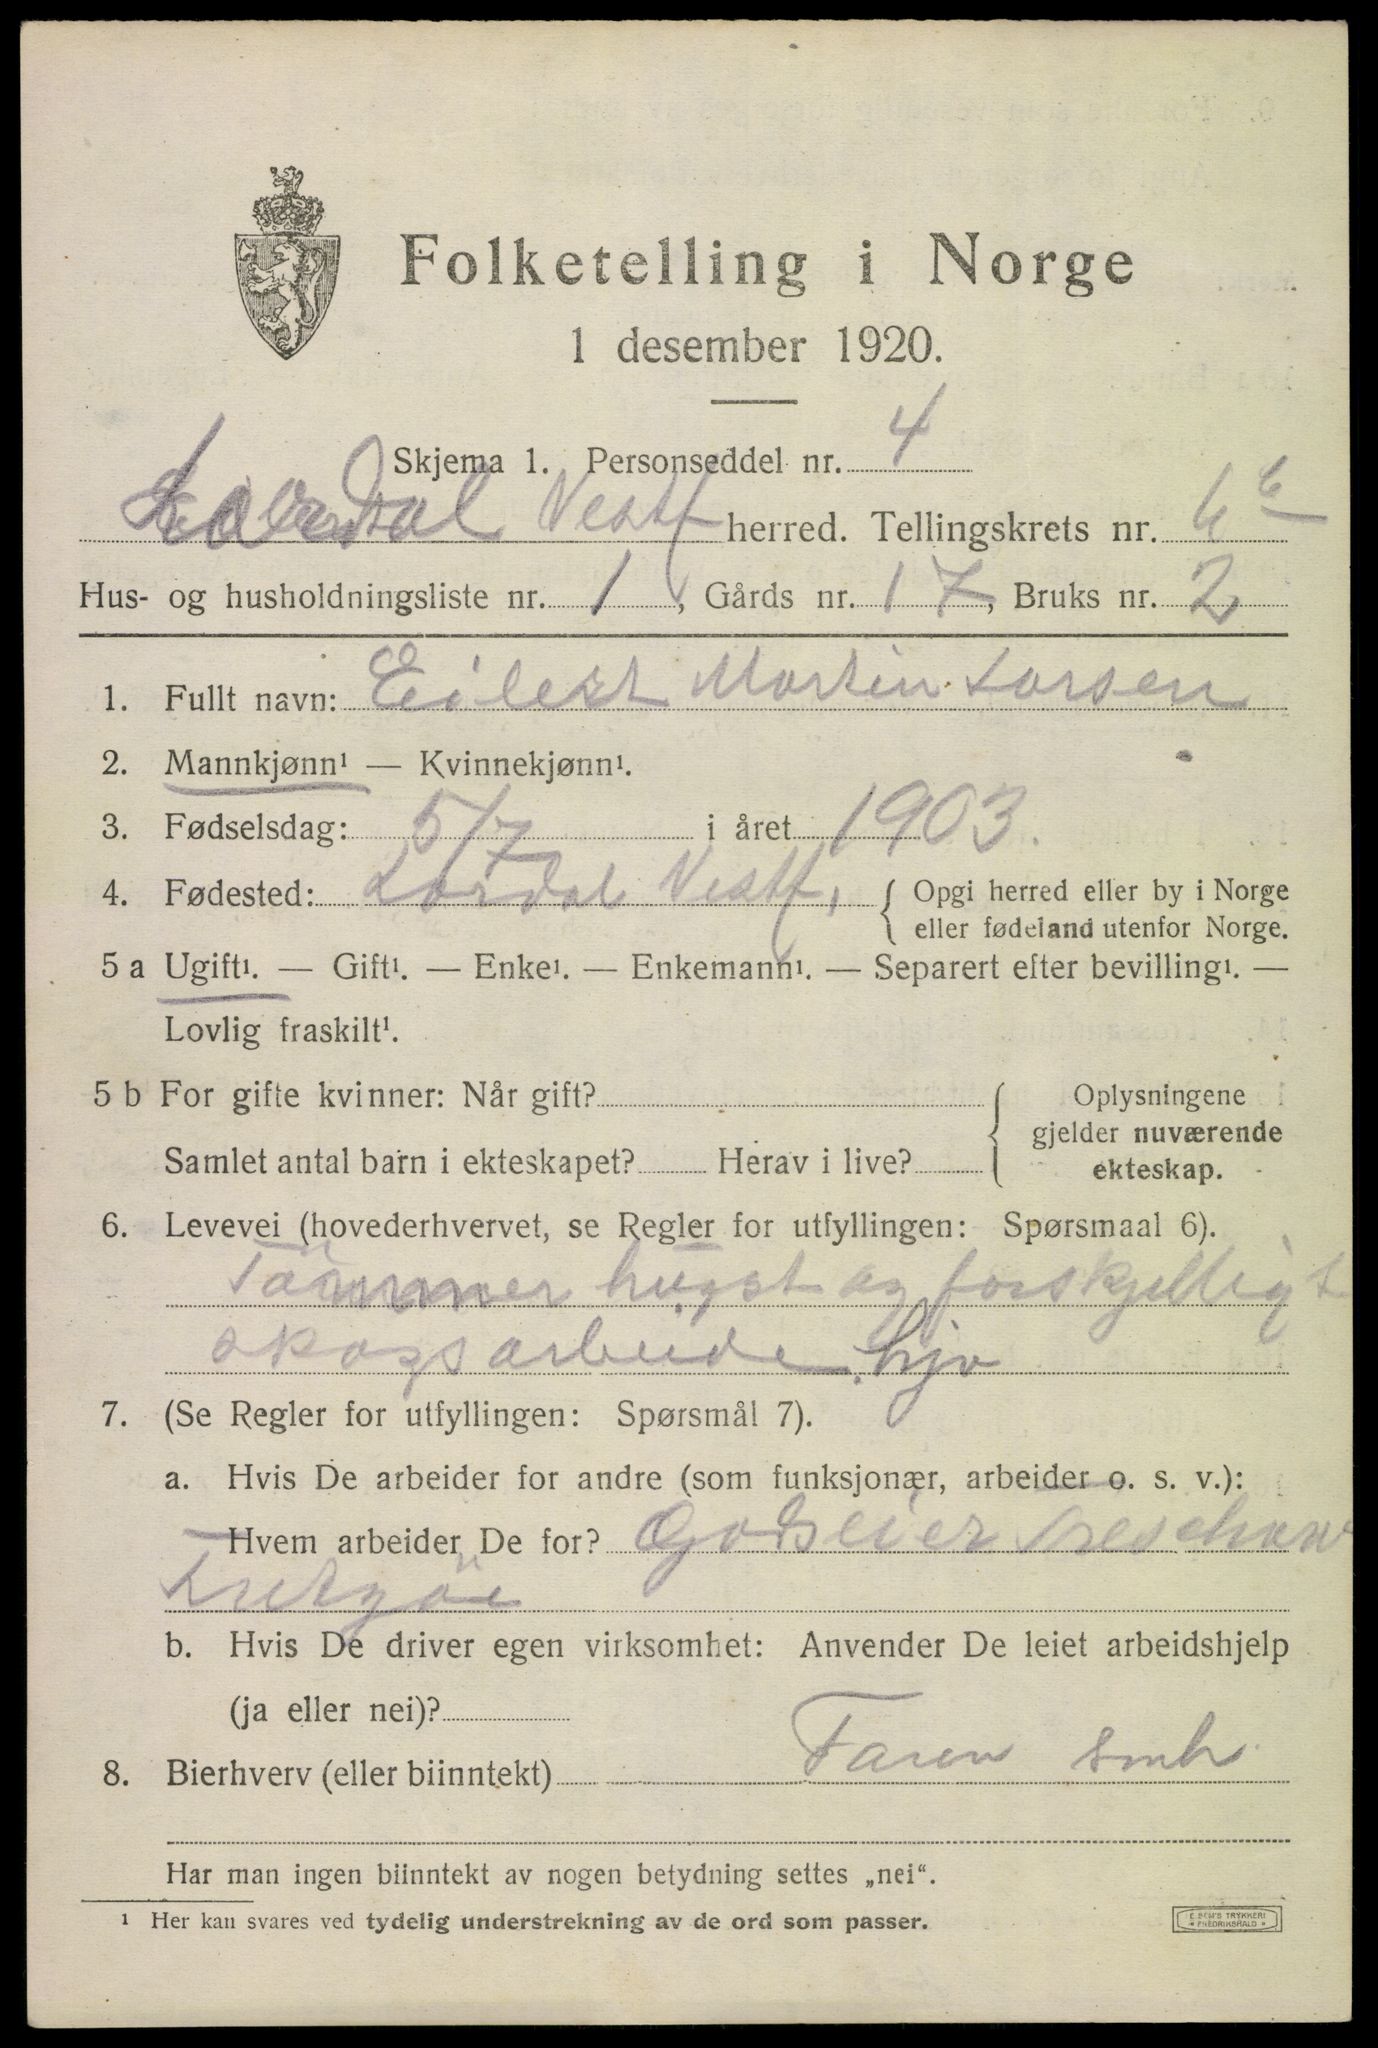 Folketelling i Norge
1 desember 1920.
Skjema 1. Personseddel nr. 4
Lardal Vestf herred. Tellingskrets nr. 6
Hus- og husholdningsliste nr. 1, Gårds nr. 17, Bruks nr. 2
1. Fullt navn: Eilert Martin Larsen
2. Mannkjønn¹ — Kvinnekjønn¹.
3. Fødselsdag: 5/7 i året 1903.
4. Fødested: Lardal Vestf. { Opgi herred eller by i Norge
eller fødeland utenfor Norge.
5 a Ugift¹. — Gift¹. — Enke¹. — Enkemann¹. — Separert efter bevilling¹. —
Lovlig fraskilt¹.
5 b For gifte kvinner: Når gift? { Oplysningene
gjelder nuværende
Samlet antal barn i ekteskapet? Herav i live? ekteskap.
6. Levevei (hovederhvervet, se Regler for utfyllingen: Spørsmaal 6).
Tømmer hugst og forskjelligt
skogsarbeide
7. (Se Regler for utfyllingen: Spørsmål 7).
a. Hvis De arbeider for andre (som funksjonær, arbeider o. s. v.):
Hvem arbeider De for? Godseier Treschow
b. Hvis De driver egen virksomhet: Anvender De leiet arbeidshjelp
(ja eller nei)?
8. Bierhverv (eller biinntekt) Faren smbr
Har man ingen biinntekt av nogen betydning settes „nei“.
¹ Her kan svares ved tydelig understrekning av de ord som passer.
E. SEM'S TRYKKERI
FREDRIKSHALD